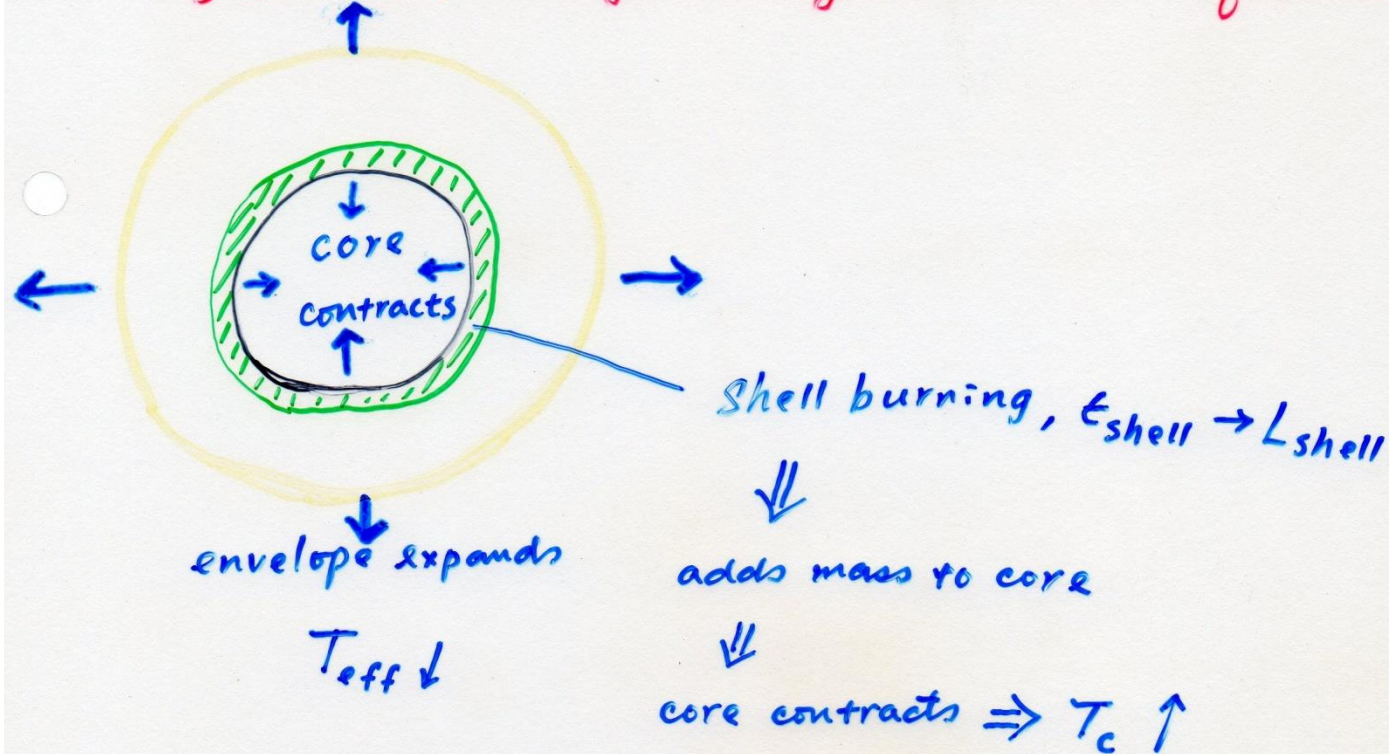 core
contracts
Shell burning, ε_shell → L_shell
⇓
envelope expands
adds mass to core
T_eff ↓
⇓
core contracts ⇒ T_c ↑